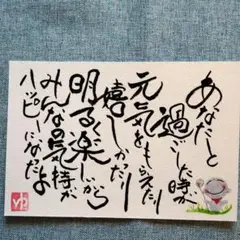 あなたと
過ごした時が
元気をもらえたり
嬉しかったり
明るく楽しいから
みんなの気持が
ハッピーになったよ